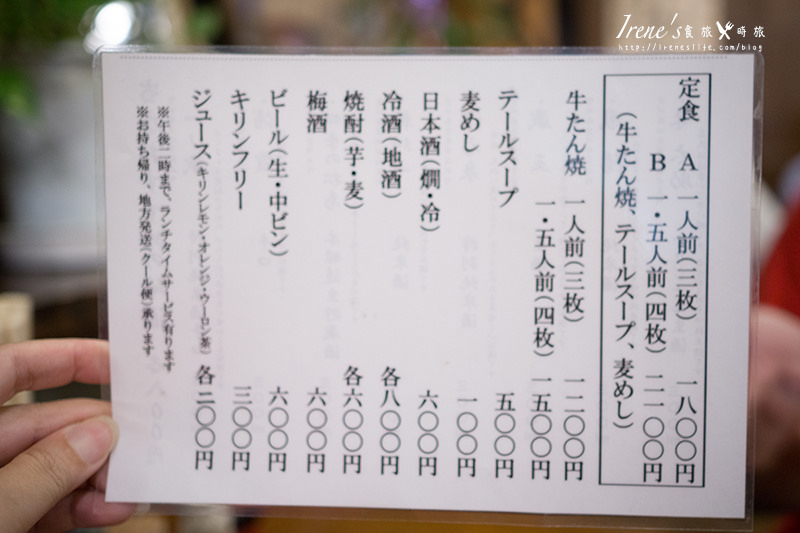 Irene's食旅時旅
http://ireneslife.com/blog
定食 A 一人前(三枚) 一八〇〇円
B 一・五人前(四枚) 二一〇〇円
(牛たん焼、テールスープ、麦めし)
牛たん焼 一人前(三枚) 一二〇〇円
一・五人前(四枚) 一五〇〇円
テールスープ 五〇〇円
麦めし 一〇〇円
日本酒(燗・冷) 六〇〇円
冷酒(地酒) 各八〇〇円
焼酎(芋・麦) 各六〇〇円
梅酒 六〇〇円
ビール(生・中ビン) 六〇〇円
キリンフリー 三〇〇円
ジュース(キリンレモン・オレンジ・ウーロン茶) 各二〇〇円
※午後二時まで、ランチタイムサービス有ります
※お持ち帰り、地方発送(クール便)承ります